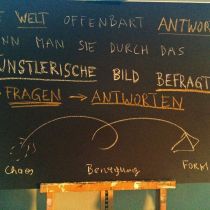 WELT OFFENBART ANTWOR
NN MAN SIE DURCH DAS
ÜNSTLERISCHE BILD BEFRAGT
FRAGEN → ANTWORTEN
Chaos Bewegung FORM